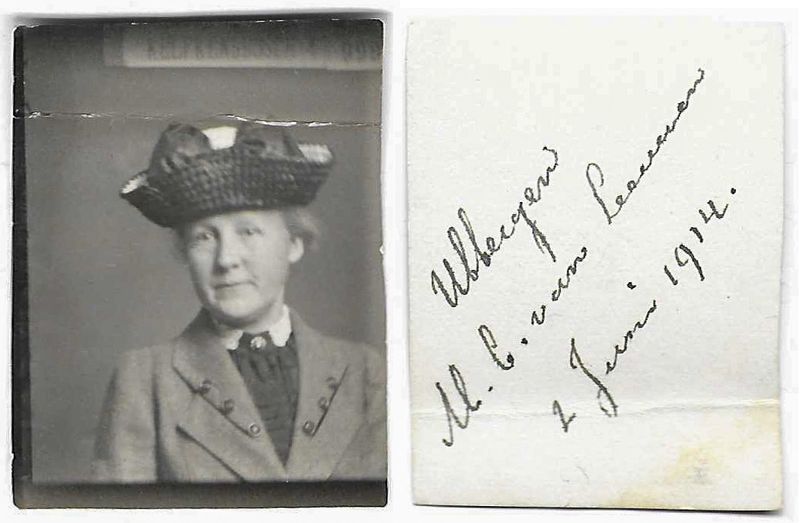 Ubbergen
M. C. van Leeuwen
2 Juni 1914.